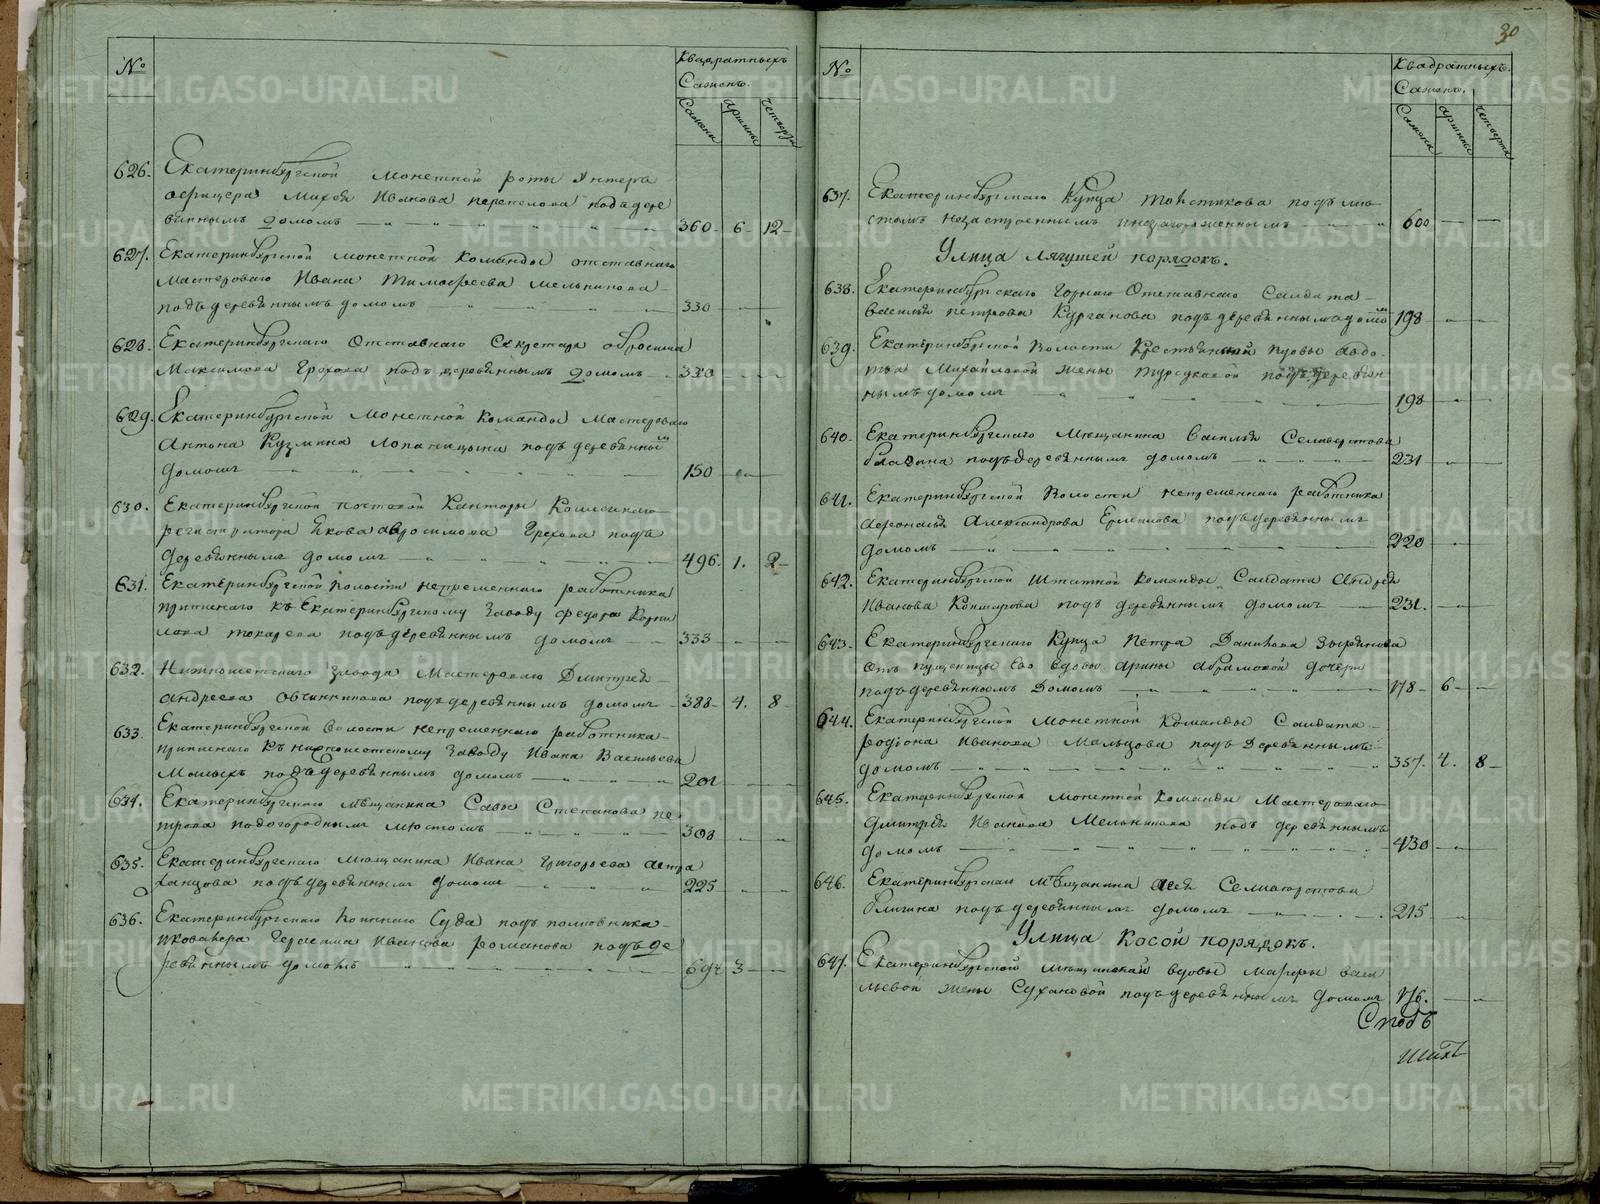 №
Квадратныхъ
Сажень.
Сажени
аршины
четверти
626. Екатеринбургской Монетной роты Унтеръ
офицера Михея Иванова перепелова подъ дере
вяннымъ домомъ 360 6 12
627. Екатеринбургской монетной команды отставнаго
мастероваго Ивана Тимофеева Мельникова
подъ деревяннымъ домомъ 330
628. Екатеринбургскаго Отставнаго Секретаря
Максимова Грехова подъ деревяннымъ домомъ 330
629. Екатеринбургской Монетной Команды Мастероваго
Антона Кузмина подъ деревянны
домомъ 150
630. Екатеринбургской Конторы
регистратора Якова Грехова подъ
деревяннымъ домомъ 496. 1. 2
631. Екатеринбургской волости непременнаго работника
приписнаго къ Екатеринбургскому Заводу федора Корни
лова токарева подъ деревяннымъ домомъ 333
632. Нижноисетскаго завода Мастероваго Дмитрея
андреева Овчинникова подъ деревяннымъ домомъ 388 4. 8
633. Екатеринбургской Волости непременнаго работника
приписнаго къ нижноисетскому Заводу Ивана Васильева
подъ деревяннымъ домомъ 201
634. Екатеринбургскаго мѣщанина Савы Степанова пе
трова подогороднымъ местомъ 308
635. Екатеринбургскаго мещанина Ивана Григорьева астра
ханцова подъ деревяннымъ домомъ 225
636. Екатеринбургскаго Суда подъ полковника
икавалера Герасима Иванова романова подъ де
ревяннымъ домомъ 694 3
30
№
Квадратныхъ.
Сажень.
Сажени
аршины
четверти
637. Екатеринбургскаго Купца толстикова подъ ме
стомъ незастроеннымъ инезагороженнымъ 600
Улица Лягушей порядокъ.
638. Екатеринбургскаго Горнаго Отставнаго Салдата
василья петрова Курганова подъ деревяннымъ домомъ 198
639. Екатеринбургской Волости вдовы авдо
тьи Михайловой жены подъ деревян
нымъ домомъ 198
640. Екатеринбургскаго Мещанина Василья Селиверстова
подъ деревяннымъ домомъ 231
641. Екатеринбургской Волости непременнаго работника
афонасья Александрова подъ деревяннымъ
домомъ 220
642. Екатеринбургской Штатной команды Салдата Андрея
Иванова подъ деревяннымъ домомъ 231.
643. Екатеринбургскаго Купца Петра Данилова Зырянова
отъ пущеницы Его вдовы арины абрамовой дочери
подъ деревяннымъ Домомъ 178 6
644. Екатеринбургской Монетной Команды Салдата
родиона Иванова Мальцова подъ Деревяннымъ
домомъ 357. 4. 8
645. Екатеринбургской монетной Команды Мастероваго
Дмитрея Иванова Мельникова подъ деревяннымъ
домомъ 430
646. Екатеринбургскаго Мѣщанина Селиверстова
подъ деревяннымъ домомъ 215
Улица Косой порядокъ.
647. Екатеринбургской мещанской вдовы васи
льевой жены Сухановой подъ деревяннымъ домомъ 176.
METRIKI.GASO-URAL.RU